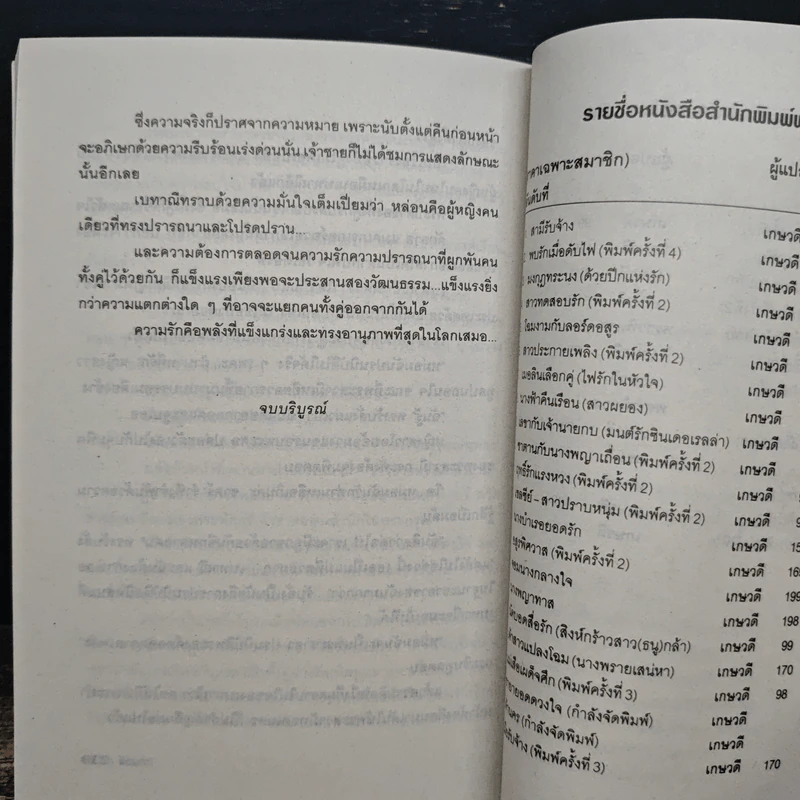 ซึ่งความจริงก็ปราศจากความหมาย เพราะนับตั้งแต่คืนก่อนหน้า
จะอภิเษกด้วยความรีบร้อนเร่งด่วนนั่น เจ้าชายก็ไม่ได้ชมการแสดงลักษณะ
นั้นอีกเลย
เบทาณีทราบด้วยความมั่นใจเต็มเปี่ยมว่า หล่อนคือผู้หญิงคน
เดียวที่ทรงปรารถนาและโปรดปราน...
และความต้องการตลอดจนความรักความปรารถนาที่ผูกพันคน
ทั้งคู่ไว้ด้วยกัน ก็แข็งแรงเพียงพอจะประสานสองวัฒนธรรม...แข็งแรงยิ่ง
กว่าความแตกต่างใด ๆ ที่อาจจะแยกคนทั้งคู่ออกจากกันได้
ความรักคือพลังที่แข็งแกร่งและทรงอานุภาพที่สุดในโลกเสมอ...
จบบริบูรณ์
รายชื่อหนังสือสำนักพิมพ์
เฉพาะสมาชิก)
สามีรับจ้าง เกษวดี
พบรักเมื่อดับไฟ (พิมพ์ครั้งที่ 4) เกษวดี
มงกุฎทระนง (ด้วยปีกแห่งรัก) เกษวดี
สาวทดสอบรัก (พิมพ์ครั้งที่ 2) เกษวดี
โฉมงามกับลอร์ดอสูร เกษวดี
สาวประกายเพลิง (พิมพ์ครั้งที่ 2) เกษวดี
เมอลินเลือกคู่ (ไฟรักในหัวใจ) เกษวดี
นางฟ้าคืนเรือน (สาวผยอง) เกษวดี
เลขากับเจ้านายกบ (มนต์รักซินเดอเรลล่า) เกษวดี
ซาตานกับนางพญาเถื่อน (พิมพ์ครั้งที่ 2) เกษวดี
รักแรงหวง (พิมพ์ครั้งที่ 2) เกษวดี
สาวปราบหนุ่ม (พิมพ์ครั้งที่ 2) เกษวดี
นางบำเรอยอดรัก เกษวดี
พิศวาส (พิมพ์ครั้งที่ 2) เกษวดี
นางกลางใจ เกษวดี
นางพญาทาส เกษวดี 199
บอดสื่อรัก (สิงห์กร้าวสาว(ธนู)กล้า) เกษวดี 198
สาวแปลงโฉม (นางพรายเสน่หา) เกษวดี 99
เสือเผด็จศึก (พิมพ์ครั้งที่ 3) เกษวดี 170
ยอดดวงใจ (กำลังจัดพิมพ์) เกษวดี 98
(กำลังจัดพิมพ์) เกษวดี
รับจ้าง (พิมพ์ครั้งที่ 3) เกษวดี 170